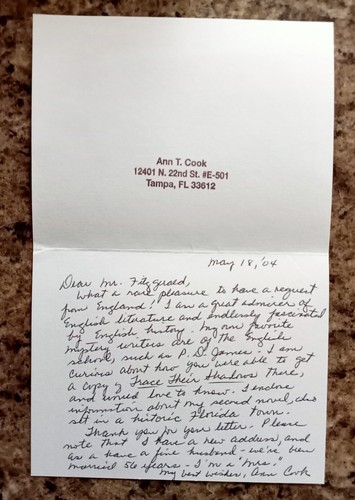 Ann T. Cook
12401 N. 22nd St. #E-501
Tampa, FL 33612
May 18, '04
Dear Mr. Fitzgerald,
What a rare pleasure to have a request
from England! I am a great admirer of
English literature and endlessly fascinated
by English history. My own favorite
mystery writers are of the English
school, such as P. D. James. I am
curious about how you were able to get
a copy of Trace Their Shadows there,
and would love to know. I enclose
information about my second novel, also
set in a historic Florida town.
Thank you for your letter. Please
note that I have a new address, and
as I have a fine husband - we've been
married 56 years - I'm a Mrs.!
My best wishes, Ann Cook